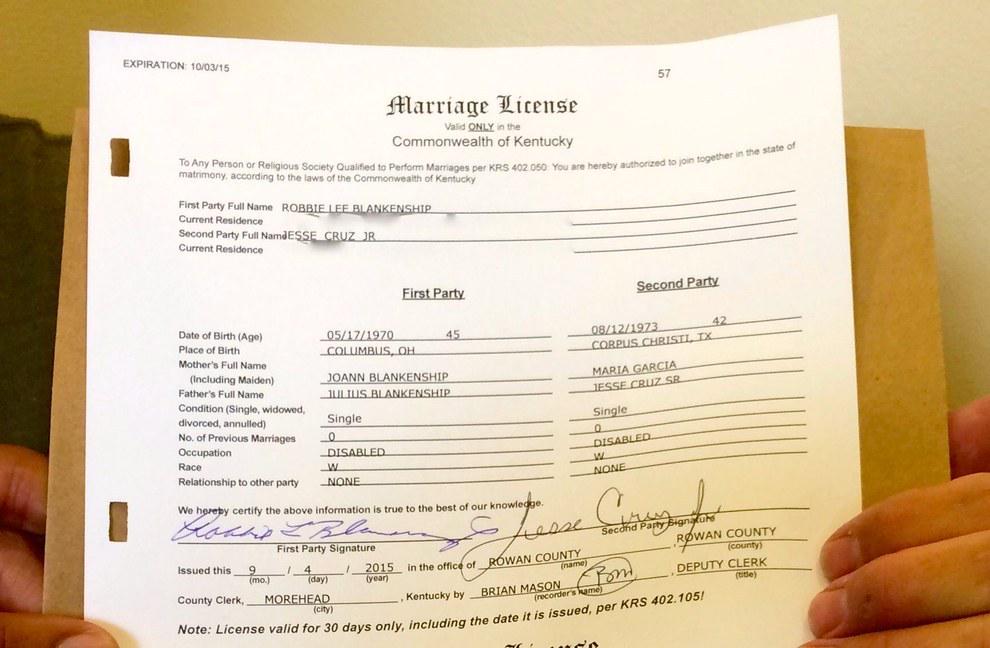 EXPIRATION: 10/03/15
57
Marriage License
Valid ONLY in the
Commonwealth of Kentucky
To Any Person or Religious Society Qualified to Perform Marriages per KRS 402.050. You are hereby authorized to join together in the state of
matrimony, according to the laws of the Commonwealth of Kentucky
First Party Full Name ROBBIE LEE BLANKENSHIP
Current Residence
Second Party Full Name JESSE CRUZ JR
Current Residence
First Party Second Party
Date of Birth (Age) 05/17/1970 45 08/12/1973 42
Place of Birth COLUMBUS, OH CORPUS CHRISTI, TX
Mother's Full Name
(Including Maiden) JOANN BLANKENSHIP MARIA GARCIA
Father's Full Name JULIUS BLANKENSHIP JESSE CRUZ SR
Condition (Single, widowed,
divorced, annulled) Single Single
No. of Previous Marriages 0 0
Occupation DISABLED DISABLED
Race W W
Relationship to other party NONE NONE
We hereby certify the above information is true to the best of our knowledge.
Robbie L Blankenship Jesse Cruz Jr.
First Party Signature Second Party Signature
Issued this 9 / 4 / 2015 in the office of ROWAN COUNTY, ROWAN COUNTY
(mo.) (day) (year) (name) (county)
County Clerk, MOREHEAD, Kentucky by BRIAN MASON Bm, DEPUTY CLERK
(city) (recorder's name) (title)
Note: License valid for 30 days only, including the date it is issued, per KRS 402.105!